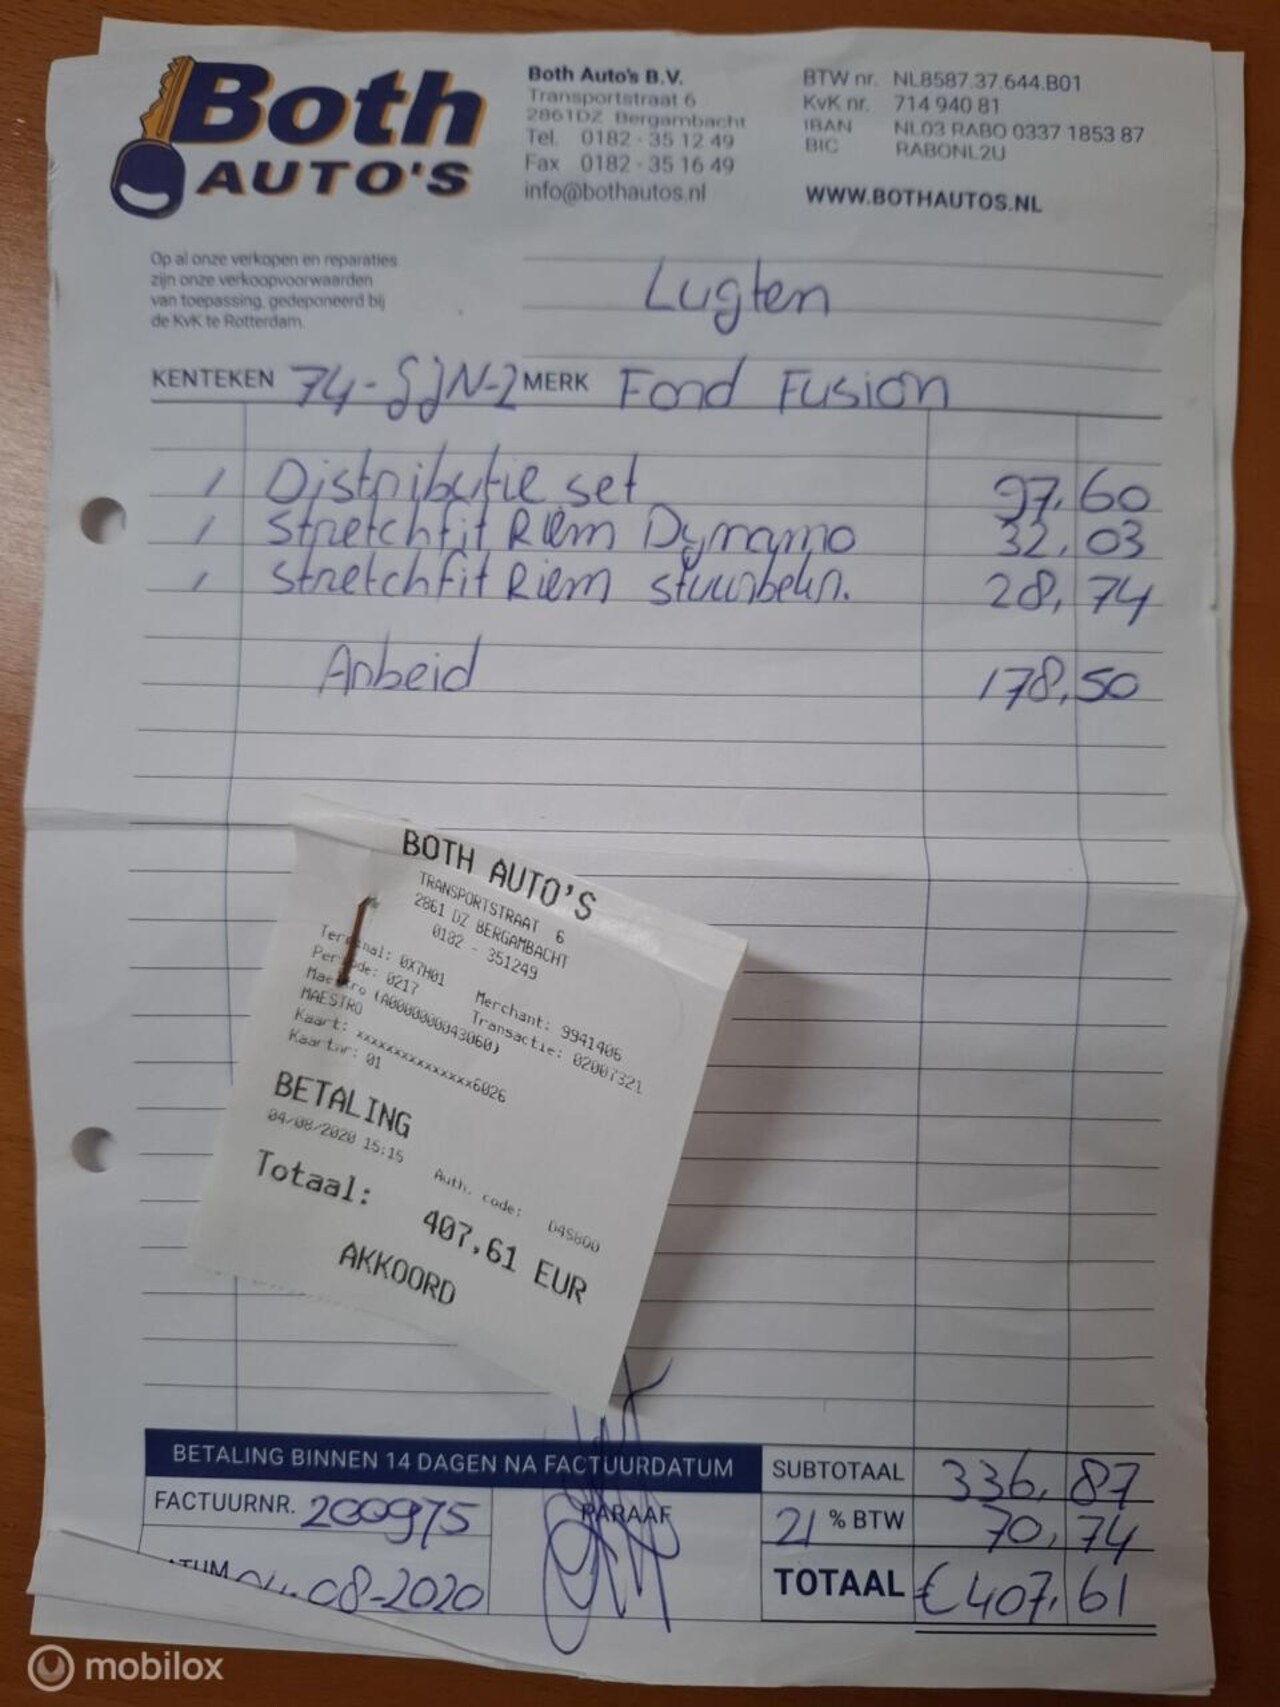 Both
AUTO'S
Both Auto's B.V.
Transportstraat 6
2861DZ Bergambacht
Tel. 0182 - 35 12 49
Fax 0182 - 35 16 49
info@bothautos.nl
BTW nr. NL8587.37.644.B01
KvK nr. 714 940 81
IBAN NL03 RABO 0337 1853 87
BIC RABONL2U
WWW.BOTHAUTOS.NL
Op al onze verkopen en reparaties
zijn onze verkoopvoorwaarden
van toepassing, gedeponeerd bij
de KvK te Rotterdam.
Lugten
KENTEKEN 74-SJN-2 MERK Ford Fusion
1 Distributie set 97,60
1 Stretchfit Riem Dynamo 32,03
1 Stretchfit Riem stuurbekr. 28,74
Arbeid 178,50
BOTH AUTO'S
TRANSPORTSTRAAT 6
2861 DZ BERGAMBACHT
0182 - 351249
Terminal: 0X7H01 Merchant: 9941406
Periode: 0217 Transactie: 02007321
Maestro (A0000000043060)
MAESTRO
Kaart: xxxxxxxxxxxxxxx6026
Kaartnr: 01
BETALING
04/08/2020 15:15 Auth. code:
Totaal: 407,61 EUR
AKKOORD
BETALING BINNEN 14 DAGEN NA FACTUURDATUM
SUBTOTAAL 336,87
FACTUURNR. 200975
PARAAF
21 % BTW 70,74
ATUM 04-08-2020
TOTAAL € 407,61
mobilox